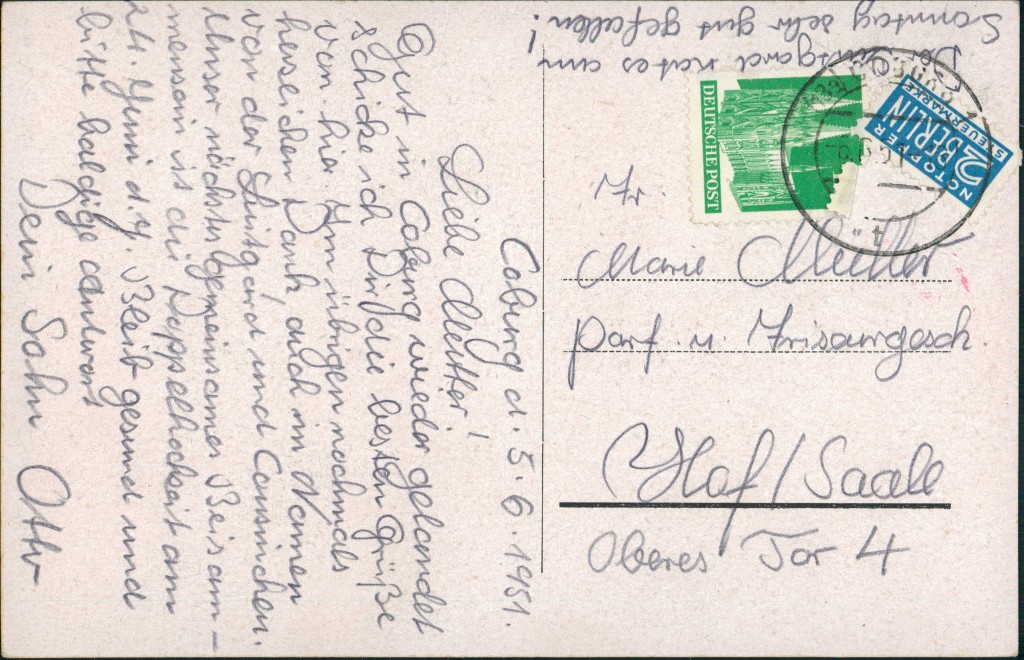 Coburg d. 5.6.1951.
Liebe Mutter!
Gut in Coburg wieder gelandet
schicke ich Dir die besten Grüße
von hier. Im übrigen nochmals
herzlichen Dank auch im Namen
von der Luitgard und Cousinchen.
Unser nächstes gemeinsames Beisam-
mensein ist die Doppelhochzeit am
24. Juni d. J. Bleib gesund und
bitte baldige Antwort
Dein Sohn Otto
Der Luitgard hat es am
Sonntag sehr gut gefallen!
DEUTSCHE POST
NOTOPFER
2 BERLIN
STEUERMARKE
Fr.
Marie Müller
Parf. u. Frisaurgesch.
Hof/Saale
Oberes Tor 4